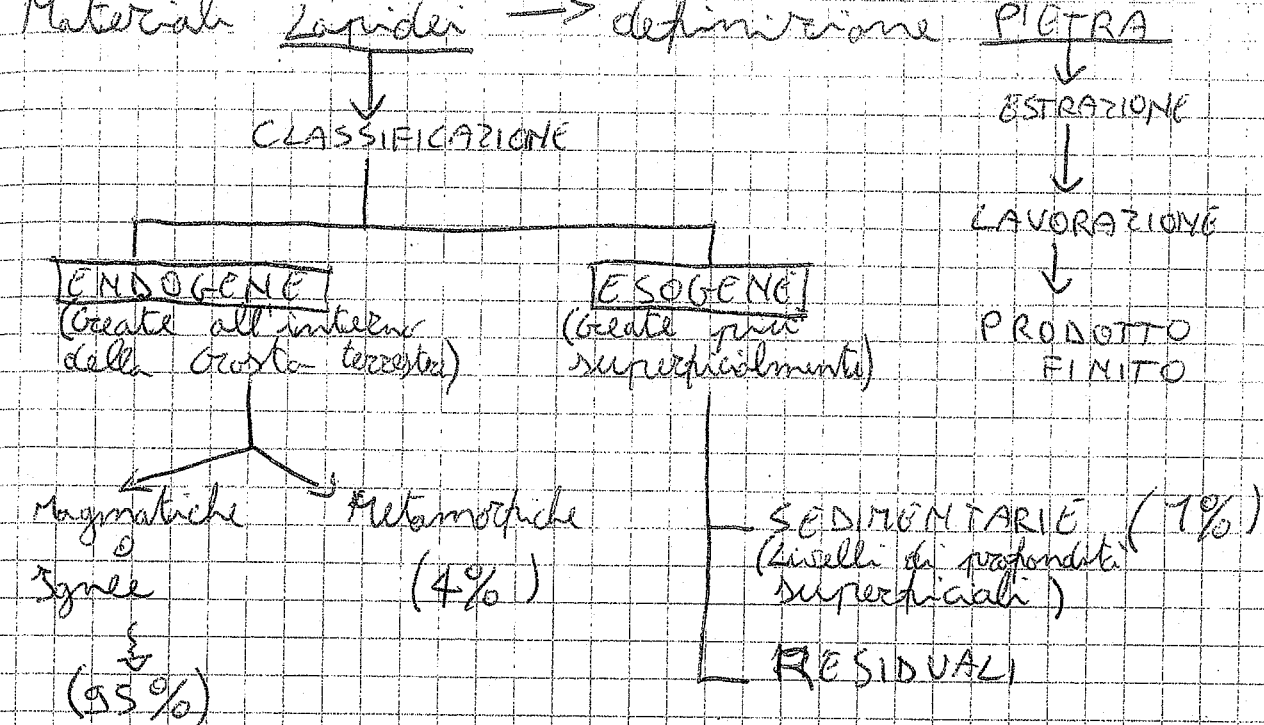 Materiali Lapidei → definizione PIETRA
CLASSIFICAZIONE
ESTRAZIONE
LAVORAZIONE
PRODOTTO
FINITO
ENDOGENE
(Create all'interno
della crosta terrestre)
ESOGENE
(Create più
superficialmente)
Magmatiche
o
Ignee
(95%)
Metamorfiche
(4%)
SEDIMENTARIE (1%)
(Livelli di profondità
superficiali)
RESIDUALI